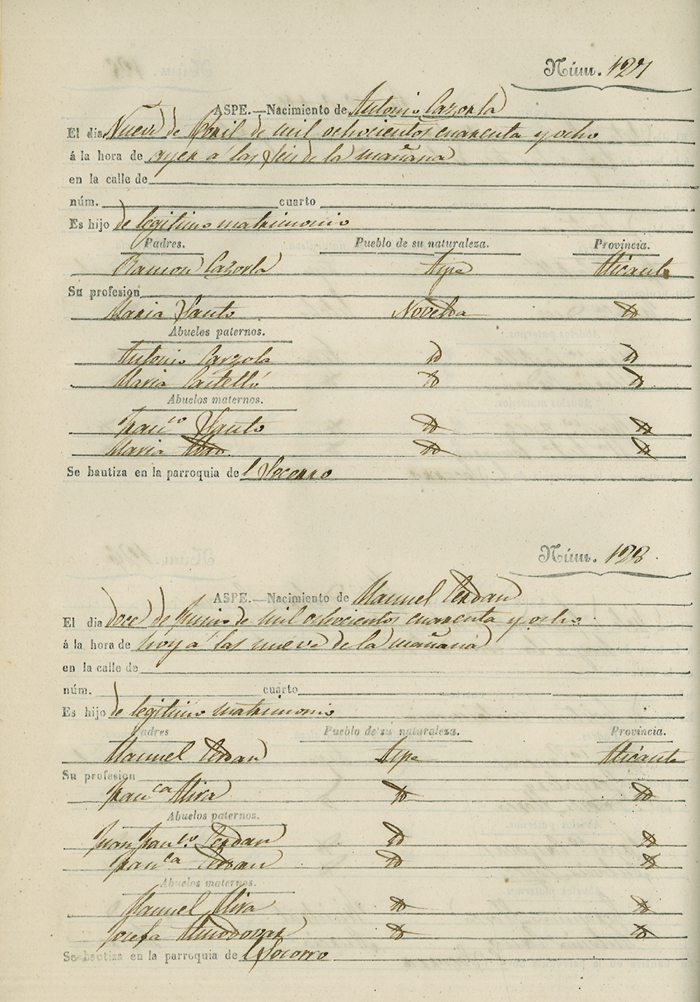 Núm. 127
ASPE.—Nacimiento de Antonio Cazorla
El dia Nueve de Abril de mil ochocientos cuarenta y ocho
á la hora de ayer á las seis de la mañana
en la calle de
núm. cuarto
Es hijo de legitimo matrimonio
Padres. Pueblo de su naturaleza. Provincia.
Ramon Cazorla Aspe Alicante
Su profesion
Maria Santo Novelda
Abuelos paternos.
Antonio Carzola
Maria Castelló
Abuelos maternos.
Franco Santo
Maria
Se bautiza en la parroquia del Socorro
Núm. 128
ASPE.—Nacimiento de Manuel Cerdan
El dia doce de Junio de mil ochocientos cuarenta y ocho
á la hora de hoy á las nueve de la mañana
en la calle de
núm. cuarto
Es hijo de legitimo matrimonio
Padres Pueblo de su naturaleza. Provincia.
Manuel Cerdan Aspe Alicante
Su profesion
Franca Mira
Abuelos paternos.
Juan Franco Cerdan
Franca Cerdan
Abuelos maternos.
Manuel Mira
Josefa Almodovar
Se bautiza en la parroquia de l Socorro